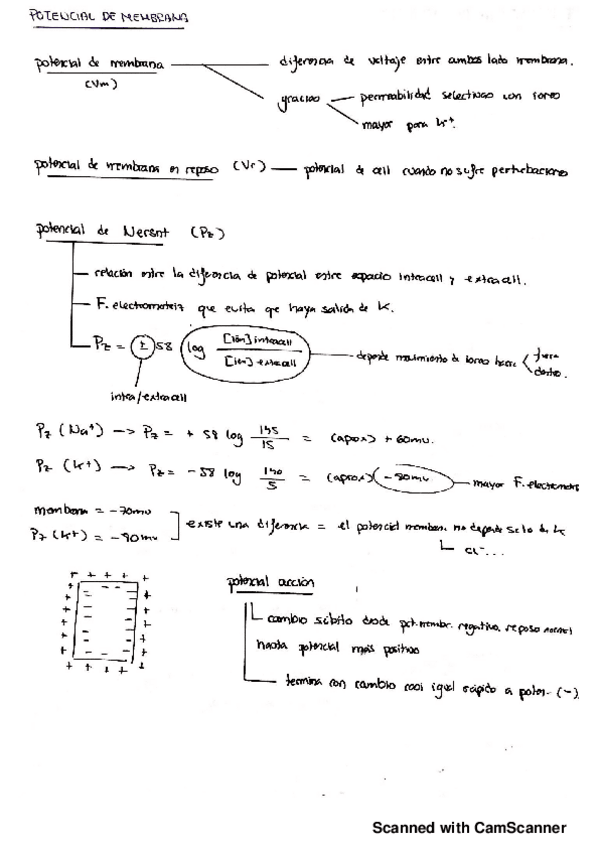 POTENCIAL DE MEMBRANA
potencial de membrana (Vm) — diferencia de voltaje entre ambos lado membrana.
gracias — permeabilidad selectivas con
mayor para K+.
potencial de membrana en reposo (Vr) — potencial de cell cuando no sufre perturbaciones
potencial de Nersnt (Pz)
relación entre la diferencia de potencial entre espacio intracell y extracell.
F. electromotriz que evita que haya salida de K.
Pz = ± 58 log [ión] intracell / [ión] extracell — depende movimiento de iones hacia < fuera
dentro.
intra/extracell
Pz (Na+) —> Pz = + 58 log 145/15 = (aprox) + 60mv.
Pz (K+) —> Pz = - 58 log 140/5 = (aprox) (-90mv — mayor F. electromotri
membrana = -70mv
Pz (K+) = -90mv
] existe una diferencia = el potencial membran. no depende solo de K
Cl-...
potencial acción
cambio súbito desde pot. membr. negativo, reposo normal
hasta potencial más positivo
termina con cambio casi igual rápido a poten. (-)
Scanned with CamScanner